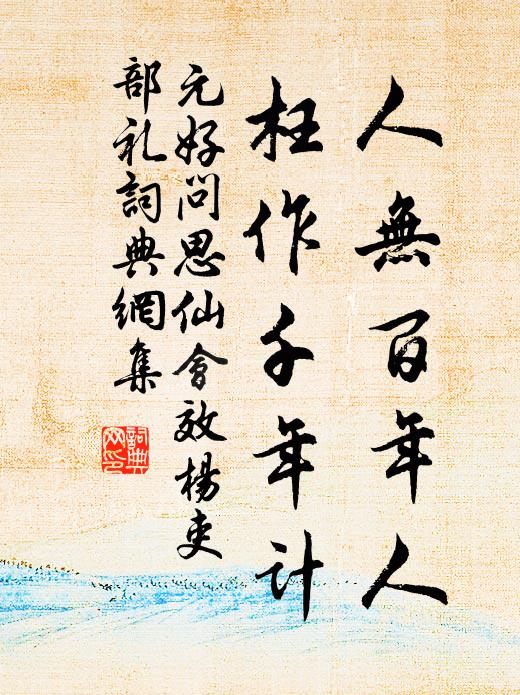 人無百年人
枉作千年計
元好問思仙會效楊吏
部礼詞典網集
詞典網印